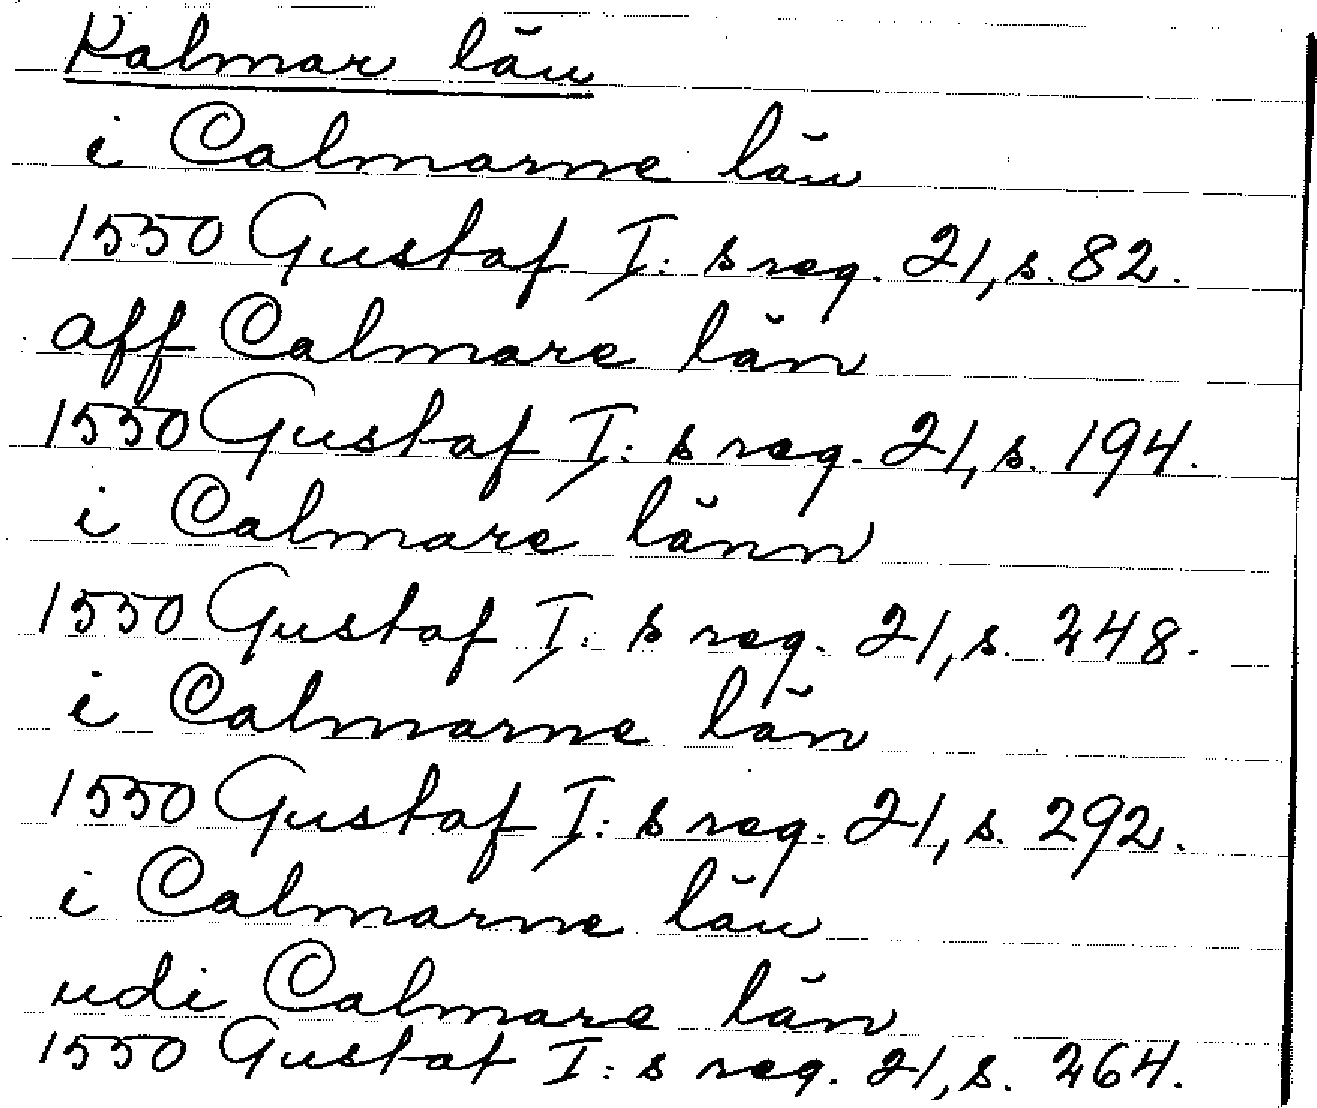 Kalmar län
i Calmarne län
1550 Gustaf I: s reg. 21, s. 82.
aff Calmare län
1550 Gustaf I: s reg. 21, s. 194.
i Calmare länn
1550 Gustaf I: s reg. 21, s. 248.
i Calmarne län
1550 Gustaf I: s reg. 21, s. 292.
i Calmarne län
udi Calmare län
1550 Gustaf I: s reg. 21, s. 264.